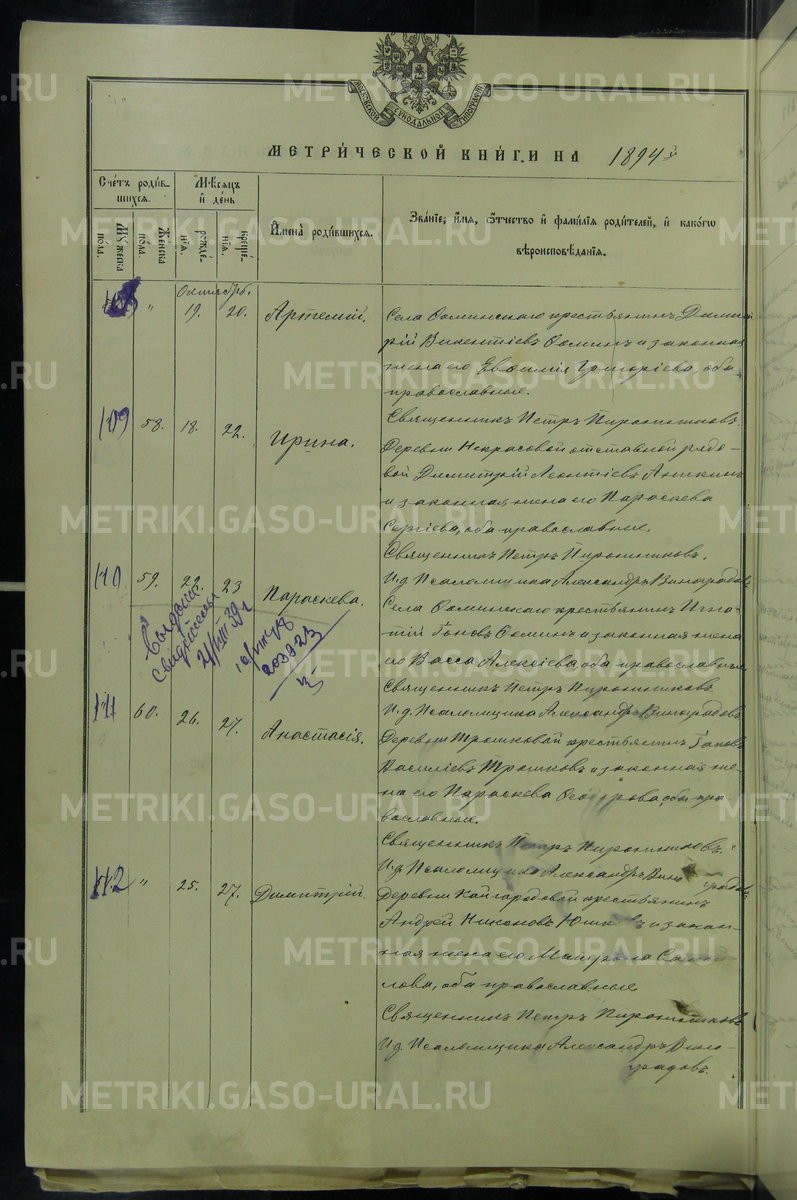 МОСКОВСКОЙ СѴНОДАЛЬНОЙ ТИПОГРАФІИ
МЕТРИ́ЧЕСКОЙ КНИ́ГИ НА 1894й
Сче́тъ роди́вшихся.
Му́жеска по́ла.
Же́нска по́ла.
Мѣ́сяцъ и҆ де́нь
рожде́нїѧ.
креще́нїѧ.
И҆мена̀ роди́вшихся.
Зва́нїе, и҆́мѧ, ѻ҆́тчество и҆ фамилїѧ роди́телей, и҆ како́гѡ
вѣроисповѣ́данїѧ.
Октябрь.
108 " 19. 20. Артемій.
Села Фоминскаго крестьянинъ Димит
рій Викентіевъ Фоминъ и законная
жена его Евфимія Григоріева, оба
православные.
Священникъ Петръ Пирожниковъ
109 58. 18. 22. Ирина.
Деревни Некрасовой отставной рядо-
вой Димитрій Леонтіевъ Аникинъ
и законная жена его Параскева
Сергіева, оба православные.
Священникъ Петръ Пирожниковъ.
И.д. Псаломщика Александръ Виноградовъ
110 59. 22. 23 Параскева.
Села Фоминскаго крестьянинъ Игна-
тій Фоминъ и законная жена
его Васса Алексіева, оба православные
Священникъ Петръ Пирожниковъ
И.д. Псаломщика Александръ Виноградовъ
выдано
свидѣтельст
21/VIII 39 г
10/VIII-48
203923
111 60. 26. 27. Анастасія.
Деревни Трошковой крестьянинъ Іаковъ
Василіевъ Трошковъ и законная же-
на его Параскева Ѳеодорова, оба пра-
вославные.
Священникъ Петръ Пирожниковъ.
И.д. Псаломщика Александръ Виноградовъ
112 " 25. 27. Димитрій.
Деревни Кайгородовой крестьянинъ
Андрей Никоновъ и закон-
ная жена его Матрона
лова, оба православные
Священникъ Петръ Пирожниковъ
И.д. Псаломщика Александръ Вино-
градовъ.
METRIKI.GASO-URAL.RU